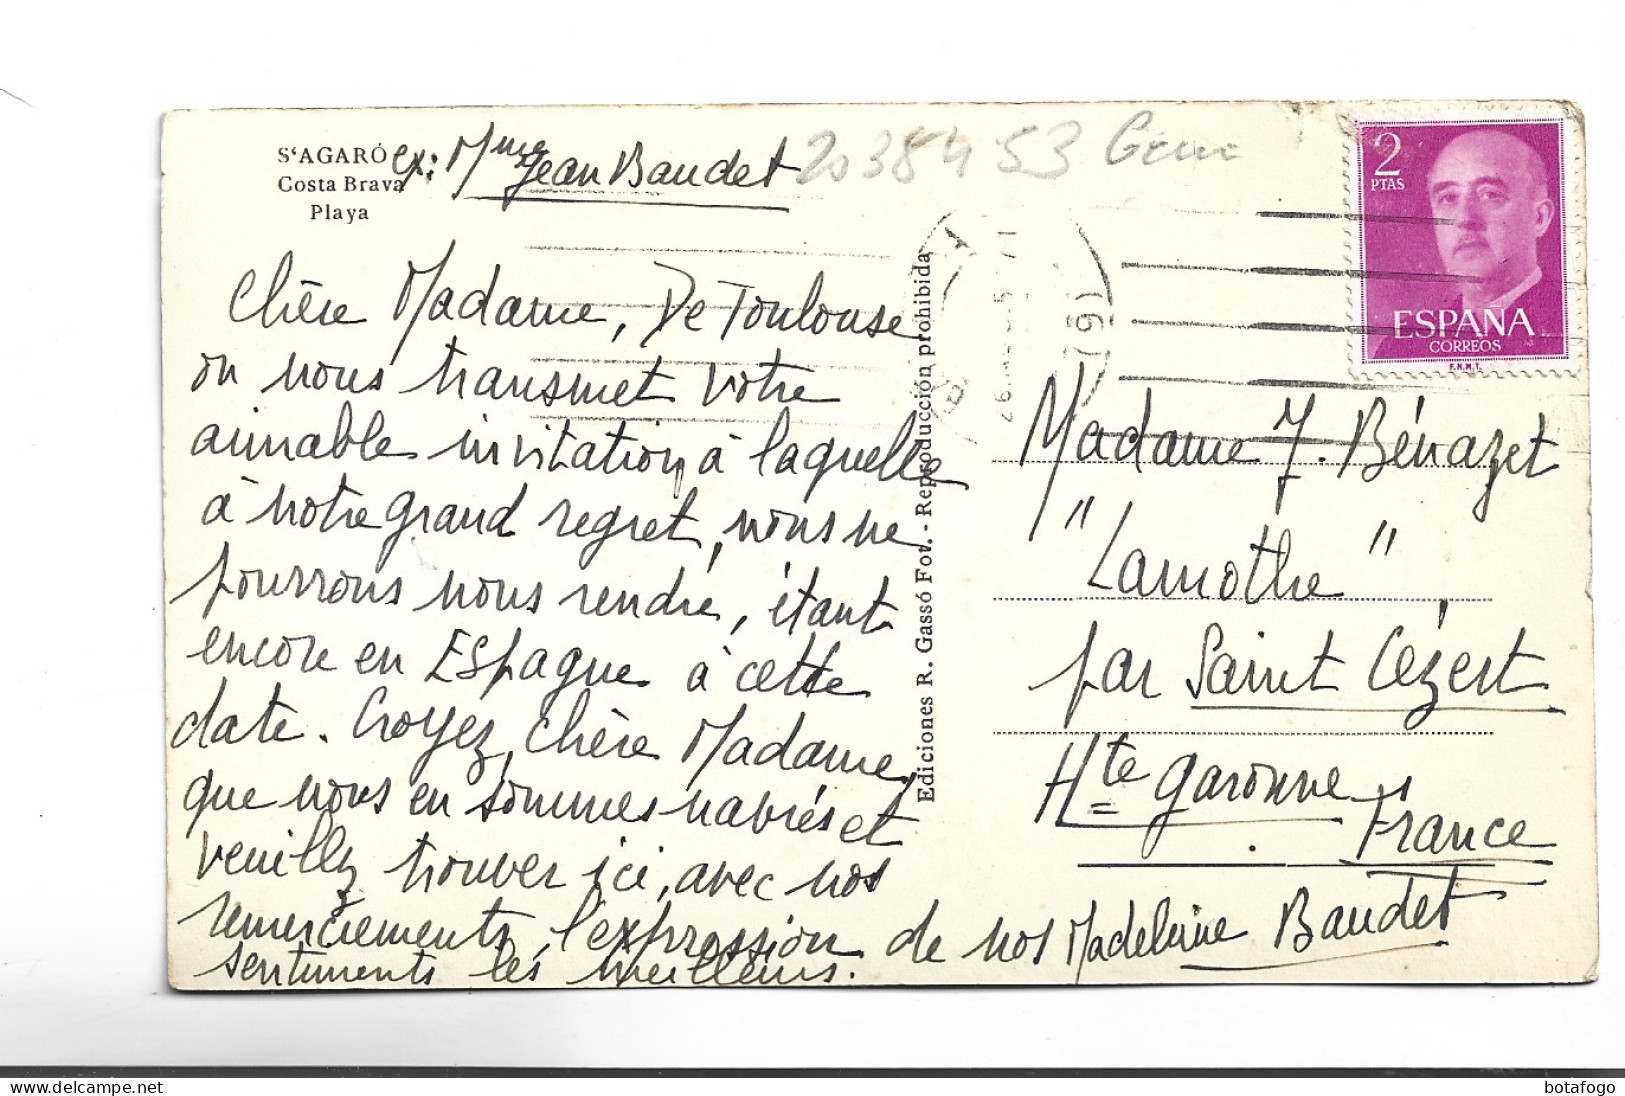 S'AGARÓ
Costa Brava
Playa
ex: Mme Jean Baudet
2038453
Chère Madame, De Toulouse
on nous transmet votre
aimable invitation à laquelle
à notre grand regret, nous ne
pourrons nous rendre, étant
encore en Espagne à cette
date. Croyez, chère Madame,
que nous en sommes navrés et
veuillez trouver ici, avec nos
remerciements, l'expression de nos
sentiments les meilleurs.
Madeleine Baudet
Ediciones R. Gassó Fot. - Reproducción prohibida
2
PTAS
ESPAÑA
CORREOS
F.N.M.T.
Madame J. Bénazet
"Lamothe"
par Saint Cézert
Hte Garonne
France
botafogo